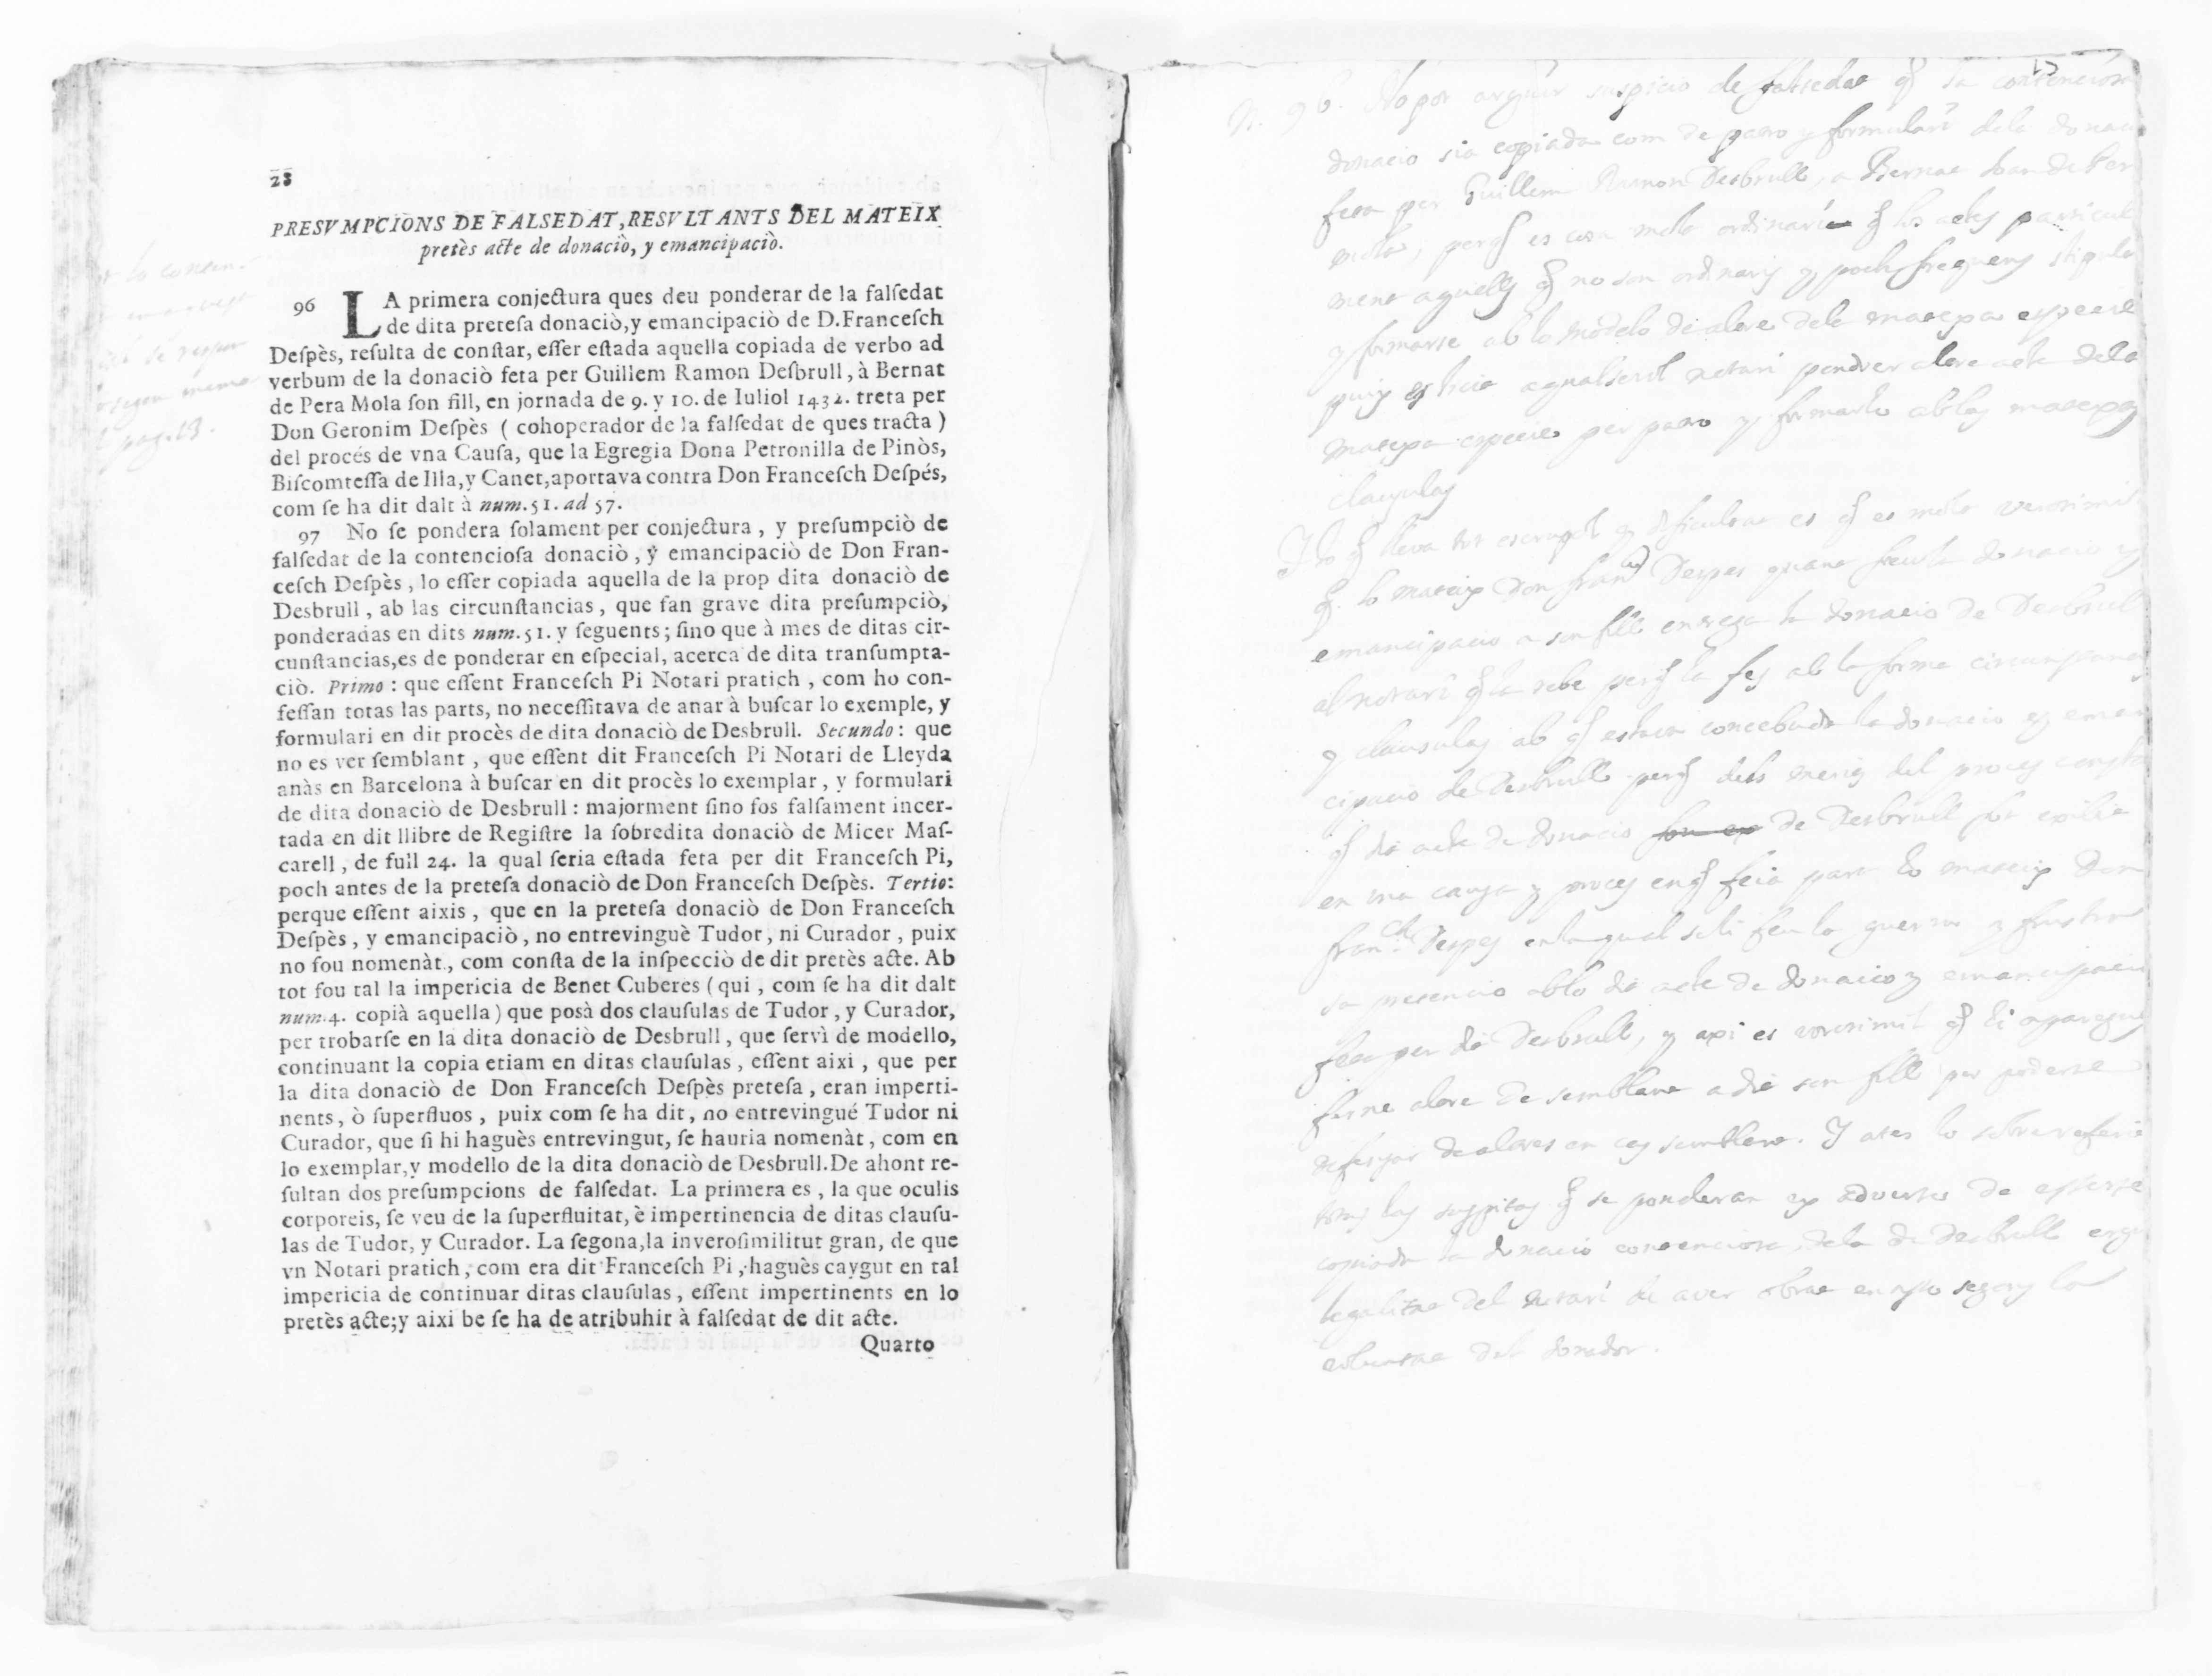 28
PRESVMPCIONS DE FALSEDAT, RESVLTANTS DEL MATEIX
pretès acte de donaciò, y emancipaciò.
96 LA primera conjectura ques deu ponderar de la falſedat
de dita preteſa donaciò, y emancipaciò de D. Franceſch
Deſpès, reſulta de conſtar, eſſer eſtada aquella copiada de verbo ad
verbum de la donaciò feta per Guillem Ramon Deſbrull, à Bernat
de Pera Mola ſon fill, en jornada de 9. y 10. de Iuliol 1432. treta per
Don Geronim Deſpès ( cohoperador de la falſedat de ques tracta )
del procés de vna Cauſa, que la Egregia Dona Petronilla de Pinòs,
Biſcomteſſa de Illa, y Canet, aportava contra Don Franceſch Deſpés,
com ſe ha dit dalt à num. 51. ad 57.
97 No ſe pondera ſolament per conjectura, y preſumpciò de
falſedat de la contencioſa donaciò, y emancipaciò de Don Fran-
ceſch Deſpès, lo eſſer copiada aquella de la prop dita donaciò de
Desbrull, ab las circunſtancias, que fan grave dita preſumpciò,
ponderadas en dits num. 51. y ſeguents; ſino que à mes de ditas cir-
cunſtancias, es de ponderar en eſpecial, acerca de dita tranſumpta-
ciò. Primo: que eſſent Franceſch Pi Notari pratich, com ho con-
feſſan totas las parts, no neceſſitava de anar à buſcar lo exemple, y
formulari en dit procès de dita donaciò de Desbrull. Secundo: que
no es ver ſemblant, que eſſent dit Franceſch Pi Notari de Lleyda
anàs en Barcelona à buſcar en dit procès lo exemplar, y formulari
de dita donaciò de Desbrull: majorment ſino fos falſament incer-
tada en dit llibre de Regiſtre la ſobredita donaciò de Micer Maſ-
carell, de full 24. la qual ſeria eſtada feta per dit Franceſch Pi,
poch antes de la preteſa donaciò de Don Franceſch Deſpès. Tertio:
perque eſſent aixis, que en la preteſa donaciò de Don Franceſch
Deſpès, y emancipaciò, no entrevinguè Tudor, ni Curador, puix
no fou nomenàt, com conſta de la inſpecciò de dit pretès acte. Ab
tot fou tal la impericia de Benet Cuberes (qui, com ſe ha dit dalt
num. 4. copià aquella) que poſà dos clauſulas de Tudor, y Curador,
per trobarſe en la dita donaciò de Desbrull, que ſervì de modello,
continuant la copia etiam en ditas clauſulas, eſſent aixi, que per
la dita donaciò de Don Franceſch Deſpès preteſa, eran imperti-
nents, ò ſuperfluos, puix com ſe ha dit, no entrevingué Tudor ni
Curador, que ſi hi haguès entrevingut, ſe hauria nomenàt, com en
lo exemplar, y modello de la dita donaciò de Desbrull. De ahont re-
ſultan dos preſumpcions de falſedat. La primera es, la que oculis
corporeis, ſe veu de la ſuperfluitat, è impertinencia de ditas clauſu-
las de Tudor, y Curador. La ſegona, la inveroſimilitut gran, de que
vn Notari pratich, com era dit Franceſch Pi, haguès caygut en tal
impericia de continuar ditas clauſulas, eſſent impertinents en lo
pretès acte; y aixi be ſe ha de atribuhir à falſedat de dit acte.
Quarto
pag. 13.
N. 96. No pot arguir suspicio de falsedat q la contenciosa
donacio sia copiada com de patro y formulari dela donacio
feta per Guillem Ramon Desbrull, a Bernat
molt ordinaria q los actes
ment aquells q no son ordinaris y poch frequens
y formarse ab lo modelo de altre dela mateixa especie
notari pendrer altre acte dela
mateixa especie per patro y formarlo ab las mateixas
clausulas
es q es molt verosimil
q lo mateix Don Franch Despes quant feu la donacio y
emancipacio a son fill entrega la donacio de Desbrull
al notari q la rebe perq la fes ab la forma
y clausulas ab q estava concebuda la donacio y eman
cipacio de Desbrull perq dels merits del proces consta
q dit acte de donacio de Desbrull
en una causa y proces en q feia part lo mateix Don
Franch Despes en la qual feu la guerra y
sa ab lo dit acte de donacio y emancipacio
feta per dit Desbrull, y axi es verosimil q
ferne altre de semblant a dit son fill per poderse
semblant. Y
q se ponderan ex adverso de
copiada la donacio contenciosa dela de Desbrull
legalitat del notari de aver obrat
voluntat del donador.